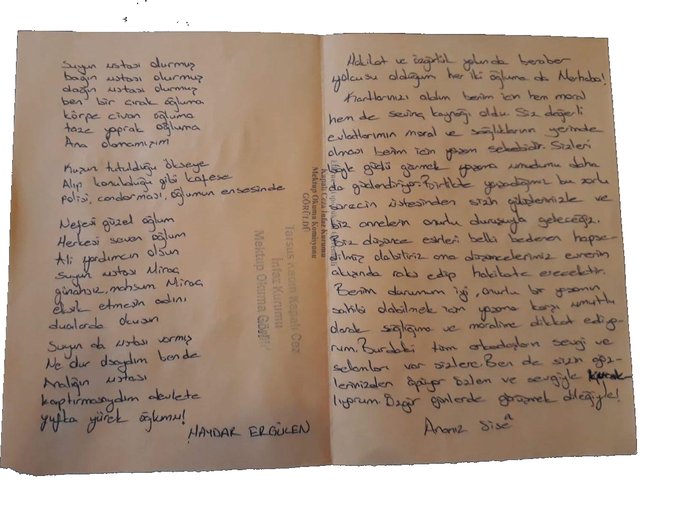 Suyun ustası durmuş
bağın ustası durmuş
dağın ustası durmuş
ben bir çırak oğluma
körpe civan oğluma
taze yaprak oğluma
Ana olamamışım
Kuşun tutulduğu ökseye
Alıp konulduğu gibi kafese
polisi, candarması, oğlumun ensesinde
Nefesi güzel oğlum
Herkesi seven oğlum
Ali yardımcın olsun
Suyun ustası Miraç
günahsız, mahsum Miraç
eksik etmesin adını
dualarda okusun
Suyun da ustası varmış
Ne olur olsaydım bende
Analığın ustası
kaptırmasaydım devlete
yufka yürek oğlumu!
HAYDAR ERGÜLEN
Hakikat ve özgürlük yolunda beraber
yolcusu olduğum her iki oğluma da Merhaba!
Kartlarınızı aldım benim için hem moral
hem de sevinç kaynağı oldu. Siz değerli
evlatlarımın moral ve sağlıklarının yerinde
olması benim için yaşam sebebidir. Sizleri
böyle güçlü görmek yaşama umudumu daha
da güçlendiriyor. Birlikte yaşadığımız bu zorlu
sürecin üstesinden sizin gülüşlerinizle ve
biz annelerin onurlu duruşuyla geleceğiz.
Biz düşünce esirleri belki bedenen hapse-
dilmiş olabiliriz ama düşüncelerimiz evrenin
akışında raks edip hakikate erecektir.
Benim durumum iyi, onurlu bir yaşamın
sahibi olabilmek için yaşama karşı umutlu
olarak sağlığıma ve moralime dikkat ediyo-
rum. Buradaki tüm arkadaşların sevgi ve
selamları var sizlere. Ben de sizin göz-
lerinizden öpüyor özlem ve sevgiyle kucak-
lıyorum. Özgür günlerde görüşmek dileğiyle!
Ananız Sisê
Tarsus Kadın Kapalı Ceza
İnfaz Kurumu
Mektup Okuma
Kapalı Ceza İnfaz Kurumu
Mektup Okuma Komisyonu
GÖRÜLDÜ